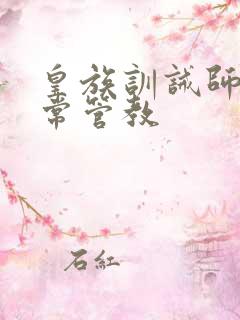 皇族訓誡師
常管教
石紅